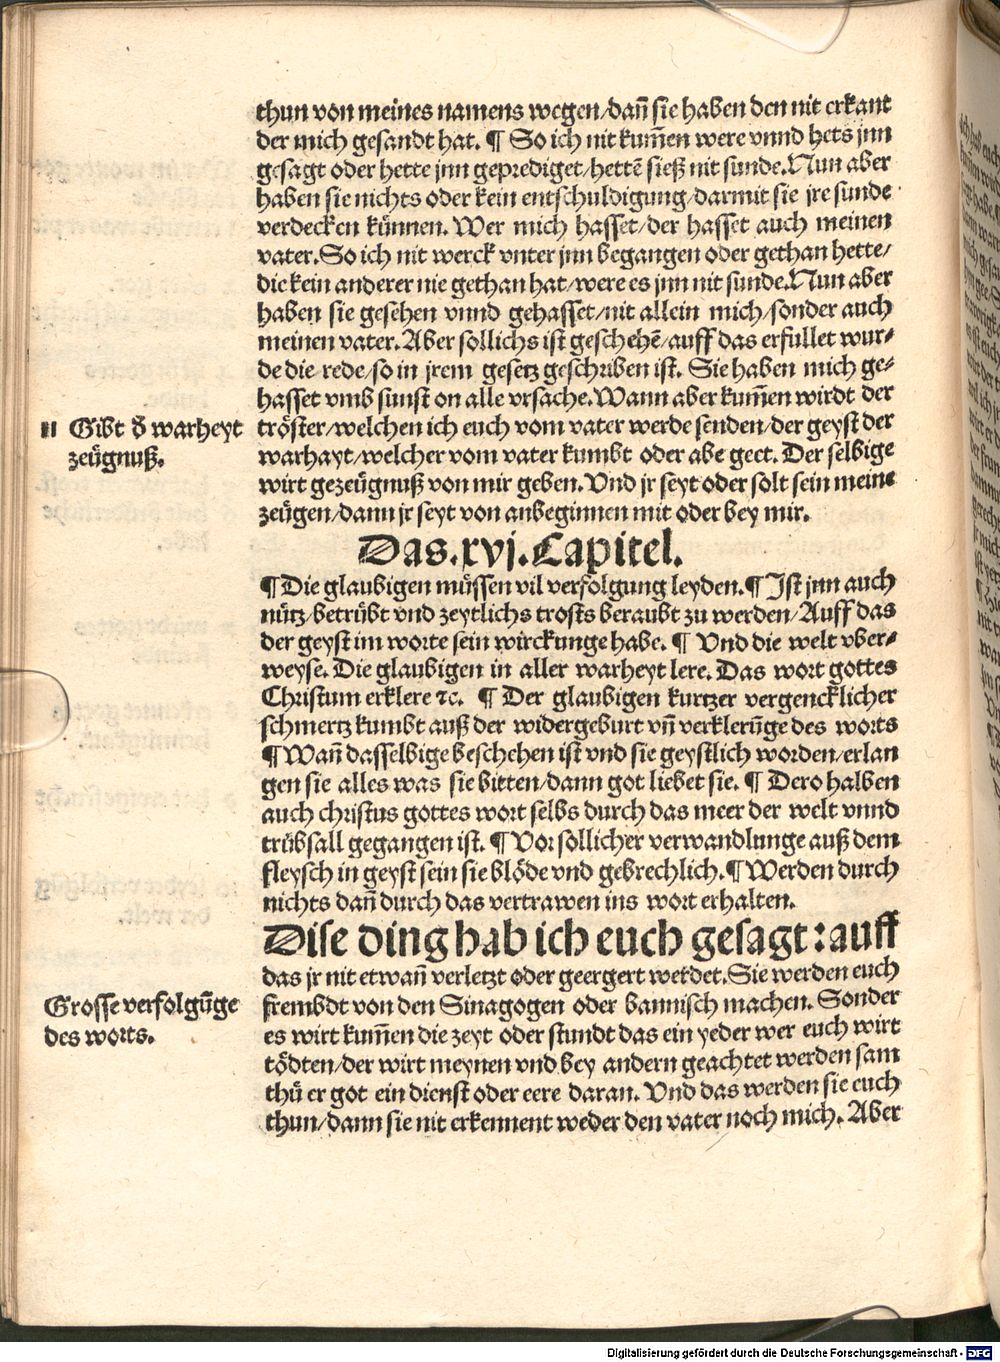 thun von meines namens wegen/dañ sie haben den nit erkant
der mich gesandt hat. ¶ So ich nit kum̃en were vnnd hets jnn
gesagt oder hette jnn geprediget/hettẽ sieß nit sunde. Nun aber
haben sie nichts oder kein entschuldigung/darmit sie jre sunde
verdecken künnen. Wer mich hasset/der hasset auch meinen
vater. So ich nit werck vnter jnn begangen oder gethan hette/
die kein anderer nie gethan hat/were es jnn nit sunde. Nun aber
haben sie gesehen vnnd gehasset/nit allein mich/sonder auch
meinen vater. Aber sollichs ist geschehẽ/auff das erfullet wur⸗
de die rede/so in jrem gesetz geschriben ist. Sie haben mich ge⸗
hasset vmb sunst on alle vrsache. Wann aber kum̃en wirdt der
tröster/welchen ich euch vom vater werde senden/der geyst der
warhayt/welcher vom vater kumbt oder abe geet. Der selbige
wirt gezeügnuß von mir geben. Vnd jr seyt oder solt sein meine
zeügen/dann jr seyt von anbeginnen mit oder bey mir.
11 Gibt d̃ warheyt
zeügnuß.
Das .xvj. Capitel.
¶ Die glaubigen müssen vil verfolgung leyden. ¶ Ist jnn auch
nütz/betrübt vnd zeytlichs trosts beraubt zu werden/Auff das
der geyst im worte sein wirckunge habe. ¶ Vnd die welt vber⸗
weyse. Die glaubigen in aller warheyt lere. Das wort gottes
Christum erklere ꝛc. ¶ Der glaubigen kurtzer vergencklicher
schmertz kumbt auß der widergeburt vñ verklerũge des worts
¶ Wañ dasselbige beschehen ist vnd sie geystlich worden/erlan
gen sie alles was sie bitten/dann got liebet sie. ¶ Dero halben
auch christus gottes wort selbs durch das meer der welt vnnd
trübsall gegangen ist. ¶ Vor sollicher verwandlunge auß dem
fleysch in geyst sein sie blöde vnd gebrechlich. ¶ Werden durch
nichts dañ durch das vertrawen ins wort erhalten.
Dise ding hab ich euch gesagt: auff
das jr nit etwañ verletzt oder geergert werdet. Sie werden euch
frembdt von den Sinagogen oder bannisch machen. Sonder
es wirt kum̃en die zeyt oder stundt das ein yeder wer euch wirt
tödten/der wirt meynen vnd bey andern geachtet werden sam
thü er got ein dienst oder eere daran. Vnd das werden sie euch
thun/dann sie nit erkennent weder den vater noch mich. Aber
Grosse verfolgũge
des worts.
Digitalisierung gefördert durch die Deutsche Forschungsgemeinschaft - DFG